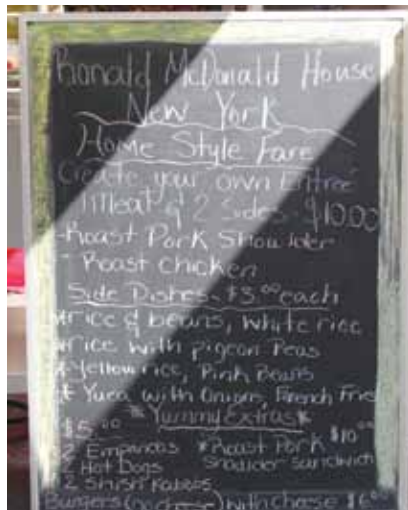 Ronald McDonald House
New York
Home Style Fare
Create your own Entreé
1 meat & 2 Sides - $10.00
- Roast Pork Shoulder
- Roast Chicken
Side Dishes - $3.00 each
* rice & beans, white rice
* rice with pigeon Peas
* Yellow rice, Pink Beans
* Yuca with Onions, French Fries
* Yummy Extras *
$5.00
2 Empandas
2 Hot Dogs
2 Shish Kabobs
* Roast Pork $10.00
Shoulder Sandwich
Burgers (no cheese) with Cheese $6.00